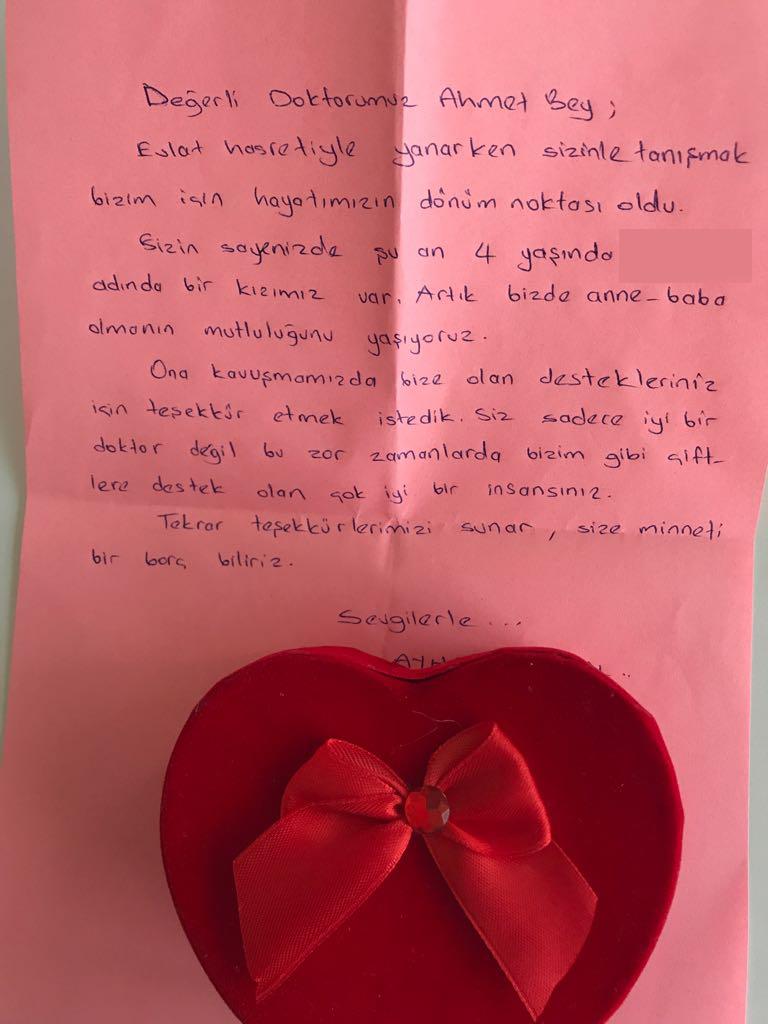 Değerli Doktorumuz Ahmet Bey;
Evlat hasretiyle yanarken sizinle tanışmak
bizim için hayatımızın dönüm noktası oldu.
Sizin sayenizde şu an 4 yaşında
adında bir kızımız var. Artık bizde anne-baba
olmanın mutluluğunu yaşıyoruz.
Ona kavuşmamızda bize olan destekleriniz
için teşekkür etmek istedik. Siz sadece iyi bir
doktor değil bu zor zamanlarda bizim gibi çift-
lere destek olan çok iyi bir insansınız.
Tekrar teşekkürlerimizi sunar, size minneti
bir borç biliriz.
Sevgilerle...